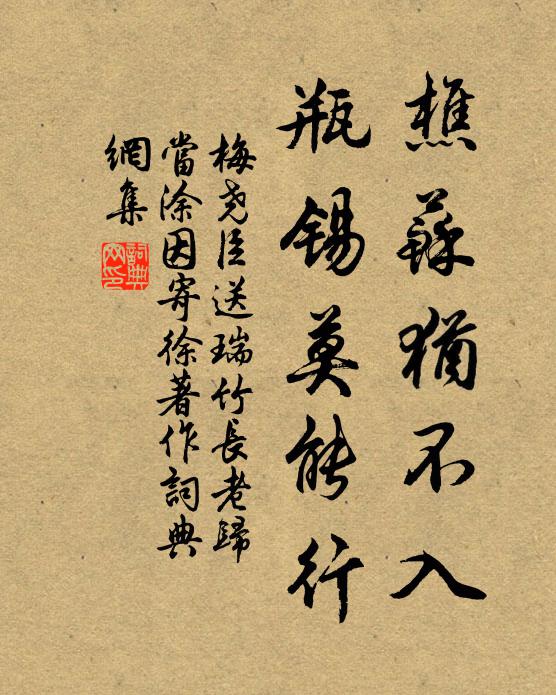 樵蘇猶不入
瓶錫莫能行
梅堯臣送瑞竹長老歸
當涂因寄徐著作詞典
網集
詞典
网印